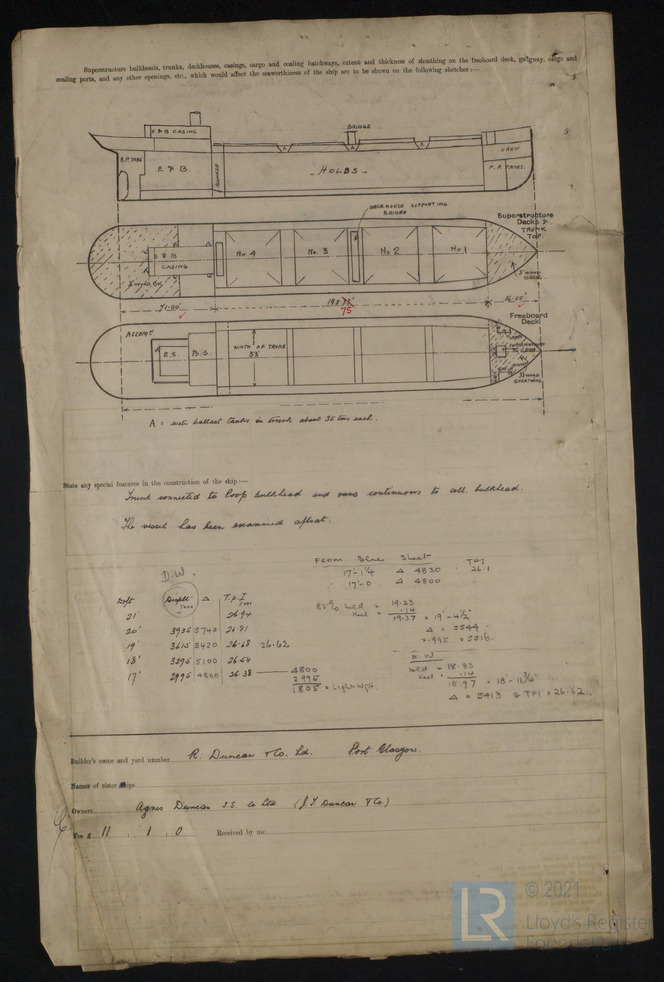 Superstructure bulkheads, trunks, deckhouses, casings, cargo and coaling hatchways, extent and thickness of sheathing on the freeboard deck, gangway, cargo and
coaling ports, and any other openings, etc., which would affect the seaworthiness of the ship are to be shewn on the following sketches:—
E & B CASING
BRIDGE
A.P. TANK
E & B.
BUNKER
- HOLDS -
CREW
F.P. TANKS.
DECKHOUSE SUPPORTING
BRIDGE
Superstructure
Decks &
TRUNK
TOP
E & B
CASING
No. 4
No. 3
No 2
No. 1
71·00'
198·75'
75
Freeboard
Deck
ACCOMT
E.S.
B.S.
WIDTH OF TRUNK
33'
A = water ballast tanks in trunk, about 35 tons each.
State any special features in the construction of the ship:—
Trunk connected to Poop bulkhead and runs continuous to coll. bulkhead.
The vessel has been examined afloat.
FROM Blue Sheet TPI
17'-1¼ Δ 4830 26.1
17'-0 Δ 4800
D.W.
Draft Depth Tons Δ T.p.I Tons
21' 26.94
20' 3935 5740 26.81
19' 3615 5420 26.68 26.62
18' 3295 5100 26.54
17' 2995 4800 26.38
4800
2995
1805 = Lightwgt.
85% mld = 19.23
keel = .14
19.37 = 19'-4½"
Δ = 5544
x.995 = 5516.
mld = 18.83
keel = .14
18.97 = 18'-11¾"
Δ = 5413 & TPI = 26.62.
Builder's name and yard number R. Duncan & Co. Ld. Port Glasgow.
Names of sister ships
Owners Agnes Duncan S.S. Co Ltd (J.T. Duncan & Co.)
Fee £ 11 . 1 . 0 Received by me
LR
© 2021
Lloyd's Register
Foundation